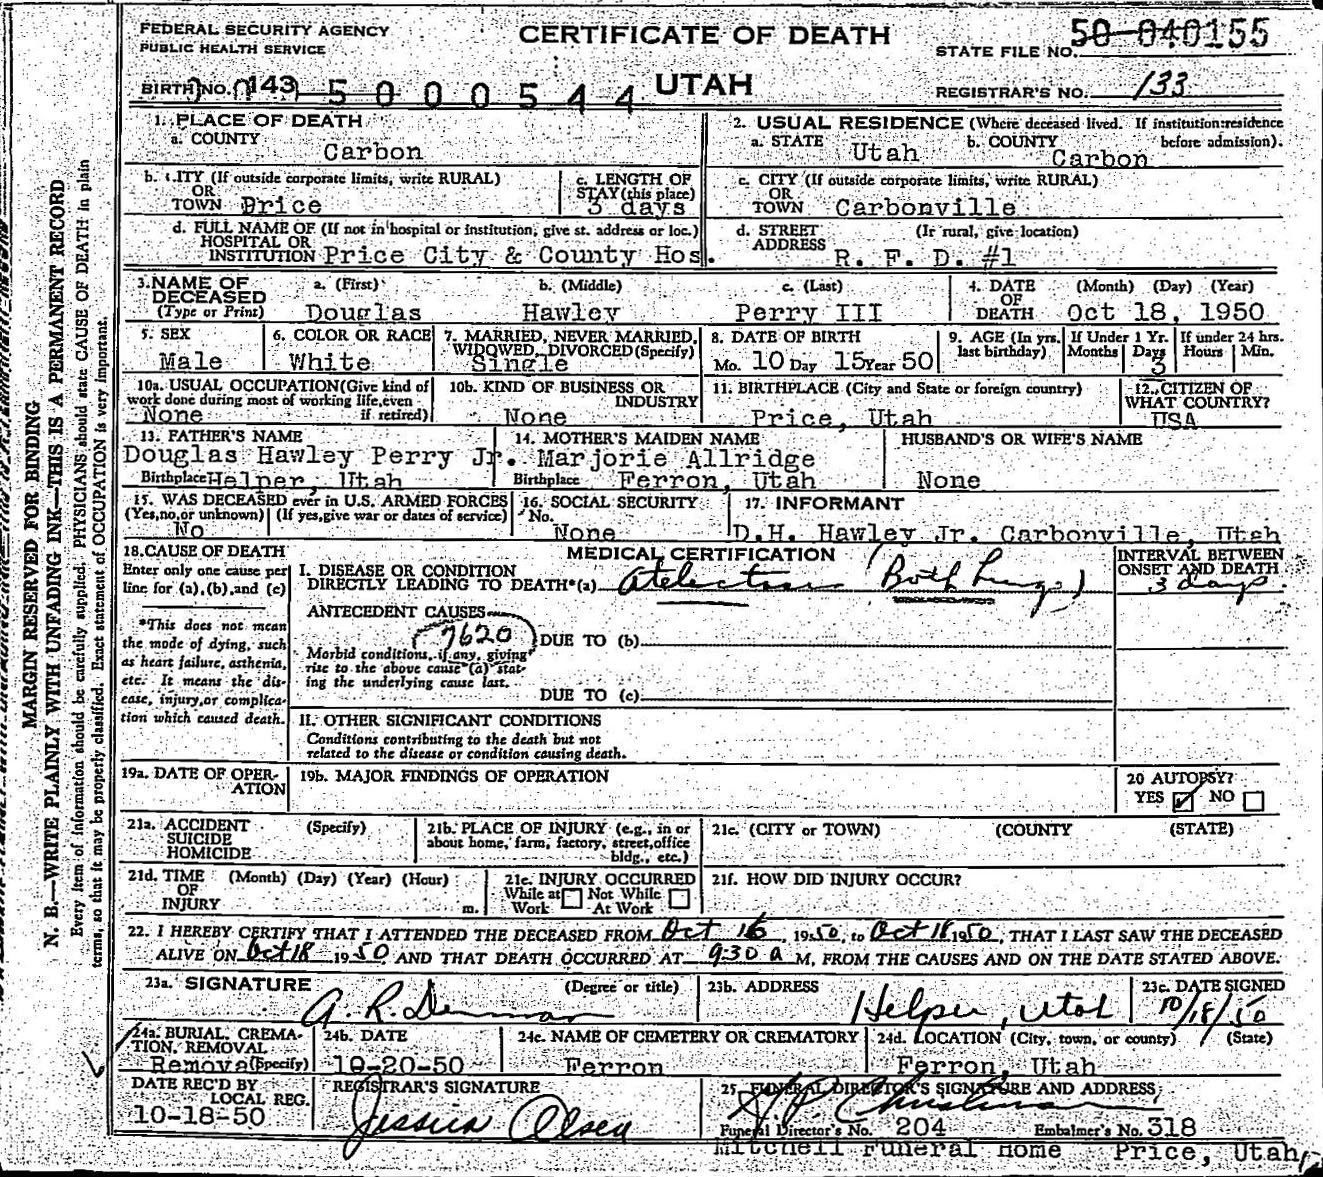 FEDERAL SECURITY AGENCY
PUBLIC HEALTH SERVICE
CERTIFICATE OF DEATH
UTAH
STATE FILE NO. 50-040155
BIRTH NO. 143 5000544
REGISTRAR'S NO. 133
1. PLACE OF DEATH
a. COUNTY Carbon
2. USUAL RESIDENCE (Where deceased lived. If institution: residence before admission).
a. STATE Utah b. COUNTY Carbon
b. CITY (If outside corporate limits, write RURAL)
OR
TOWN Price
c. LENGTH OF
STAY (this place)
3 days
c. CITY (If outside corporate limits, write RURAL)
OR
TOWN Carbonville
d. FULL NAME OF (If not in hospital or institution, give st. address or loc.)
HOSPITAL OR
INSTITUTION Price City & County Hos.
d. STREET (If rural, give location)
ADDRESS R. F. D. #1
3. NAME OF DECEASED
(Type or Print)
a. (First) b. (Middle) c. (Last)
Douglas Hawley Perry III
4. DATE OF DEATH (Month) (Day) (Year)
Oct 18, 1950
5. SEX
Male
6. COLOR OR RACE
White
7. MARRIED, NEVER MARRIED,
WIDOWED, DIVORCED (Specify)
Single
8. DATE OF BIRTH
Mo. 10 Day 15 Year 50
9. AGE (In yrs. last birthday)
If Under 1 Yr.
Months Days
3
If under 24 hrs.
Hours Min.
10a. USUAL OCCUPATION (Give kind of
work done during most of working life, even
if retired)
None
10b. KIND OF BUSINESS OR
INDUSTRY
None
11. BIRTHPLACE (City and State or foreign country)
Price, Utah
12. CITIZEN OF
WHAT COUNTRY?
USA
13. FATHER'S NAME
Douglas Hawley Perry Jr.
Birthplace Helper, Utah
14. MOTHER'S MAIDEN NAME
Marjorie Allridge
Birthplace Ferron, Utah
HUSBAND'S OR WIFE'S NAME
None
15. WAS DECEASED ever in U.S. ARMED FORCES
(Yes, no, or unknown) (If yes, give war or dates of service)
No
16. SOCIAL SECURITY
No.
None
17. INFORMANT
D.H. Hawley Jr. Carbonville, Utah
18. CAUSE OF DEATH
Enter only one cause per
line for (a), (b), and (c)
*This does not mean
the mode of dying, such
as heart failure, asthenia,
etc. It means the dis-
ease, injury, or complica-
tion which caused death.
MEDICAL CERTIFICATION
I. DISEASE OR CONDITION
DIRECTLY LEADING TO DEATH*(a) Atelectasis (Both Lungs)
INTERVAL BETWEEN
ONSET AND DEATH
3 days
ANTECEDENT CAUSES
7620 DUE TO (b)
Morbid conditions, if any, giving
rise to the above cause (a) stat-
ing the underlying cause last.
DUE TO (c)
II. OTHER SIGNIFICANT CONDITIONS
Conditions contributing to the death but not
related to the disease or condition causing death.
19a. DATE OF OPER-
ATION
19b. MAJOR FINDINGS OF OPERATION
20 AUTOPSY?
YES ☑ NO ☐
21a. ACCIDENT (Specify)
SUICIDE
HOMICIDE
21b. PLACE OF INJURY (e.g., in or
about home, farm, factory, street, office
bldg., etc.)
21c. (CITY or TOWN) (COUNTY) (STATE)
21d. TIME (Month) (Day) (Year) (Hour)
OF
INJURY m.
21e. INJURY OCCURRED
While at Work ☐ Not While At Work ☐
21f. HOW DID INJURY OCCUR?
22. I HEREBY CERTIFY THAT I ATTENDED THE DECEASED FROM Oct 16 1950, to Oct 18 1950, THAT I LAST SAW THE DECEASED
ALIVE ON Oct 18 1950, AND THAT DEATH OCCURRED AT 9:30 a M, FROM THE CAUSES AND ON THE DATE STATED ABOVE.
23a. SIGNATURE (Degree or title)
A. R. Demman
23b. ADDRESS
Helper, Utah
23c. DATE SIGNED
10/18/50
24a. BURIAL, CREMA-
TION, REMOVAL
Removal (Specify)
24b. DATE
10-20-50
24c. NAME OF CEMETERY OR CREMATORY
Ferron
24d. LOCATION (City, town, or county) (State)
Ferron, Utah
DATE REC'D BY
LOCAL REG.
10-18-50
REGISTRAR'S SIGNATURE
Jessica Olsen
25. FUNERAL DIRECTOR'S SIGNATURE AND ADDRESS
Funeral Director's No. 204 Embalmer's No. 318
Mitchell Funeral Home Price, Utah
MARGIN RESERVED FOR BINDING
N. B.—WRITE PLAINLY WITH UNFADING INK—THIS IS A PERMANENT RECORD
Every item of information should be carefully supplied. PHYSICIANS should state CAUSE OF DEATH in plain
terms, so that it may be properly classified. Exact statement of OCCUPATION is very important.